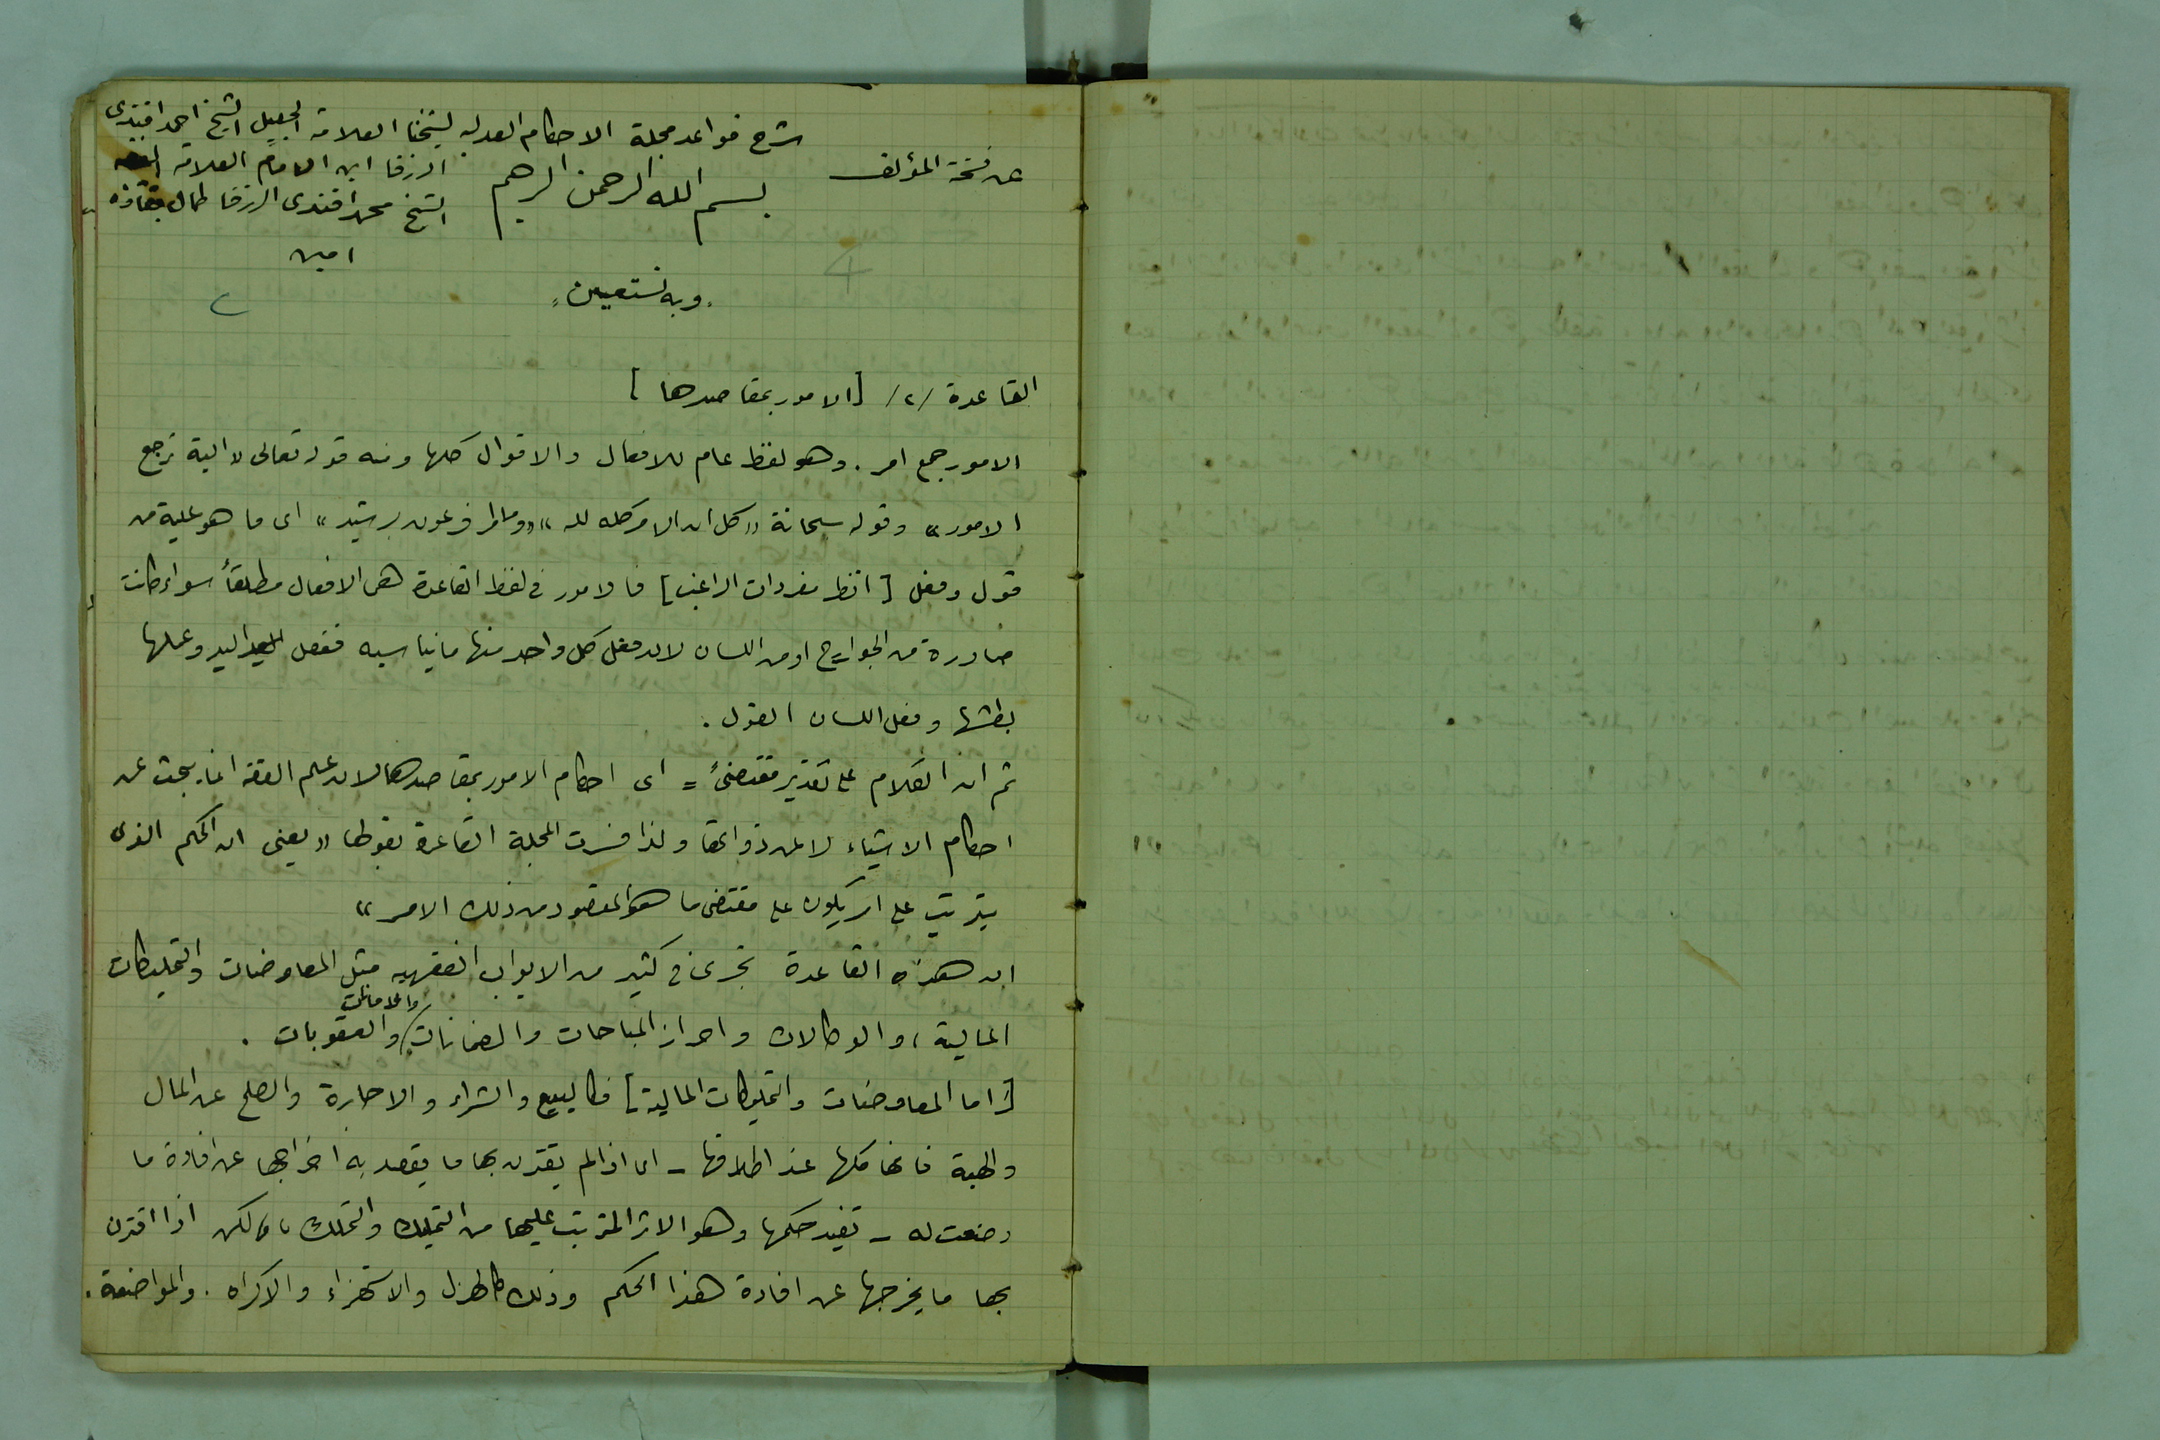 شرح قواعد مجلة الاحكام العدليه لشيخنا العلامة الجليل الشيخ احمد افندى
الزرقا ابن الامام العلامة الفقيه
الشيخ محمد افندى الزرقا طال بقاؤه
امين
عن نسخة المؤلف
بسم الله الرحمن الرحيم
وبه نستعين
القاعدة /٢/ [الامور بمقاصدها]
الامور جمع امر . وهو لفظ عام للافعال والاقوال كلها ومنه قوله تعالى «اليه ترجع
الامور» وقوله سبحانة «كل ان الامر كله لله» «وما امر فرعون برشيد» اى ما هو عليه من
قول وفعل [انظر مفردات الراغب] فالامور فى لفظ القاعدة هى الافعال مطلقاً سواء كانت
صادرة من الجوارح او من اللسان لان فعل كل واحد منها ما يناسبه ففعل اليد وعملها
بطشها وفعل اللسان القول .
ثم ان الكلام على تقدير مقتضىً = اى احكام الامور بمقاصدها لان علم الفقه انما يبحث عن
احكام الاشياء لا عن ذواتها ولذا فسرت المجلة القاعدة بقولها «يعنى ان الحكم الذى
يترتب على امر يكون على مقتضى ما هو المقصود من ذلك الامر»
ان هذه القاعدة تجرى فى كثير من الابواب الفقهيه مثل المعاوضات والتمليكات
المالية ، والوكالات واحراز المباحات والضمانات والامانات والعقوبات .
[اما المعاوضات والتمليكات المالية] فكالبيع والشراء والاجارة والصلح عن المال
والهبة فانها كلها عند اطلاقها - اى اذا لم يقترن بها ما يقصد به اخراجها عن افادة ما
وضعت له - تفيد حكمها وهو الاثر المترتب عليها من التمليك والتملك ، لكن اذا اقترن
بها ما يخرجها عن افادة هذا الحكم وذلك كالهزل والاستهزاء والاكراه . والمواضعة .